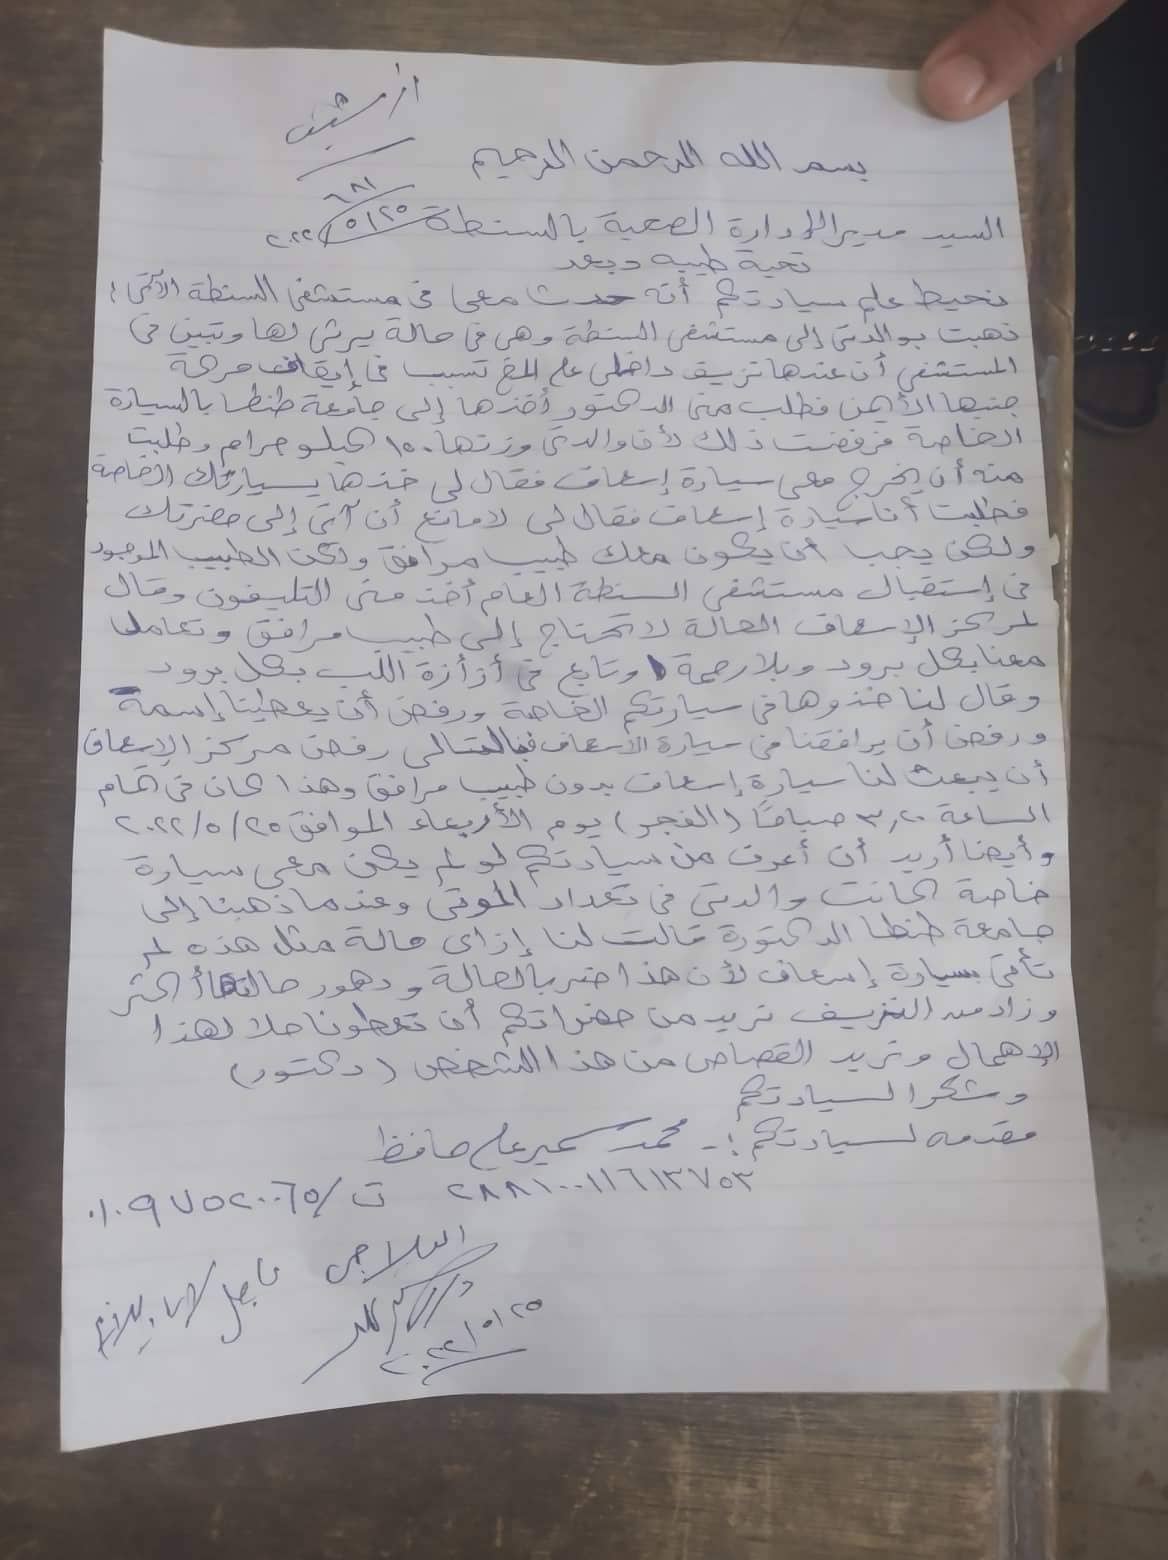 أرشيف
٦٨١
٢٠٢٢/٥/٢٥
بسم الله الرحمن الرحيم
السيد مدير الإدارة الصحية بالسنطة
تحية طيبه وبعد
نحيط علم سيادتكم أنه حدث معى فى مستشفى السنطة الآتى :
ذهبت بوالدتى إلى مستشفى السنطة وهى فى حالة يرثى لها وتبين فى
المستشفى أن عندها نزيف داخلى على المخ تسبب فى إيقاف حركة
جنبها الأيمن فطلب منى الدكتور أخذها إلى جامعة طنطا بالسيارة
الخاصة فرفضت ذلك لأن والدتى وزنها ١٥٠ كيلو جرام وطلبت
منه أن يخرج معى سيارة إسعاف فقال لى خذها بسيارتك الخاصة
فطلبت أنا سيارة إسعاف فقال لى لا مانع أن آتى إلى حضرتك
ولكن يجب أن يكون معك طبيب مرافق ولكن الطبيب الموجود
فى إستقبال مستشفى السنطة العام أخذ منى التليفون وقال
لمركز الإسعاف الحالة لا تحتاج إلى طبيب مرافق وتعامل
معنا بكل برود وبلا رحمة وتابع فى أزأزة اللب بكل برود
وقال لنا خذوها فى سيارتكم الخاصة ورفض أن يعطينا إسمة
ورفض أن يرافقنا فى سيارة الأسعاف فبالتالى رفض مركز الإسعاف
أن يبعث لنا سيارة إسعاف بدون طبيب مرافق وهذا كان فى تمام
الساعة ٣,٢٠ صباحًا (الفجر) يوم الأربعاء الموافق ٢٠٢٢/٥/٢٥
وأيضا أريد أن أعرف من سيادتكم لو لم يكن معى سيارة
خاصة لكانت والدتى فى تعداد الموتى وعندما ذهبنا إلى
جامعة طنطا الدكتورة قالت لنا إزاى حالة مثل هذه لم
تأتى بسيارة إسعاف لأن هذا ضر بالحالة ودهور حالتها أكثر
وزاد من النزيف نريد من حضراتكم أن تعطونا حلا لهذا
الإهمال ونريد القصاص من هذا الشخص (دكتور)
وشكرا لسيادتكم
مقدمه لسيادتكم :- محمد سمير على حافظ
٢٨٨١٠٠١١٦١٣٧٥٣ ت / ٠١٠٩٧٥٢٠٠٦٥
العلاجى
٢٠٢٢/٥/٢٥